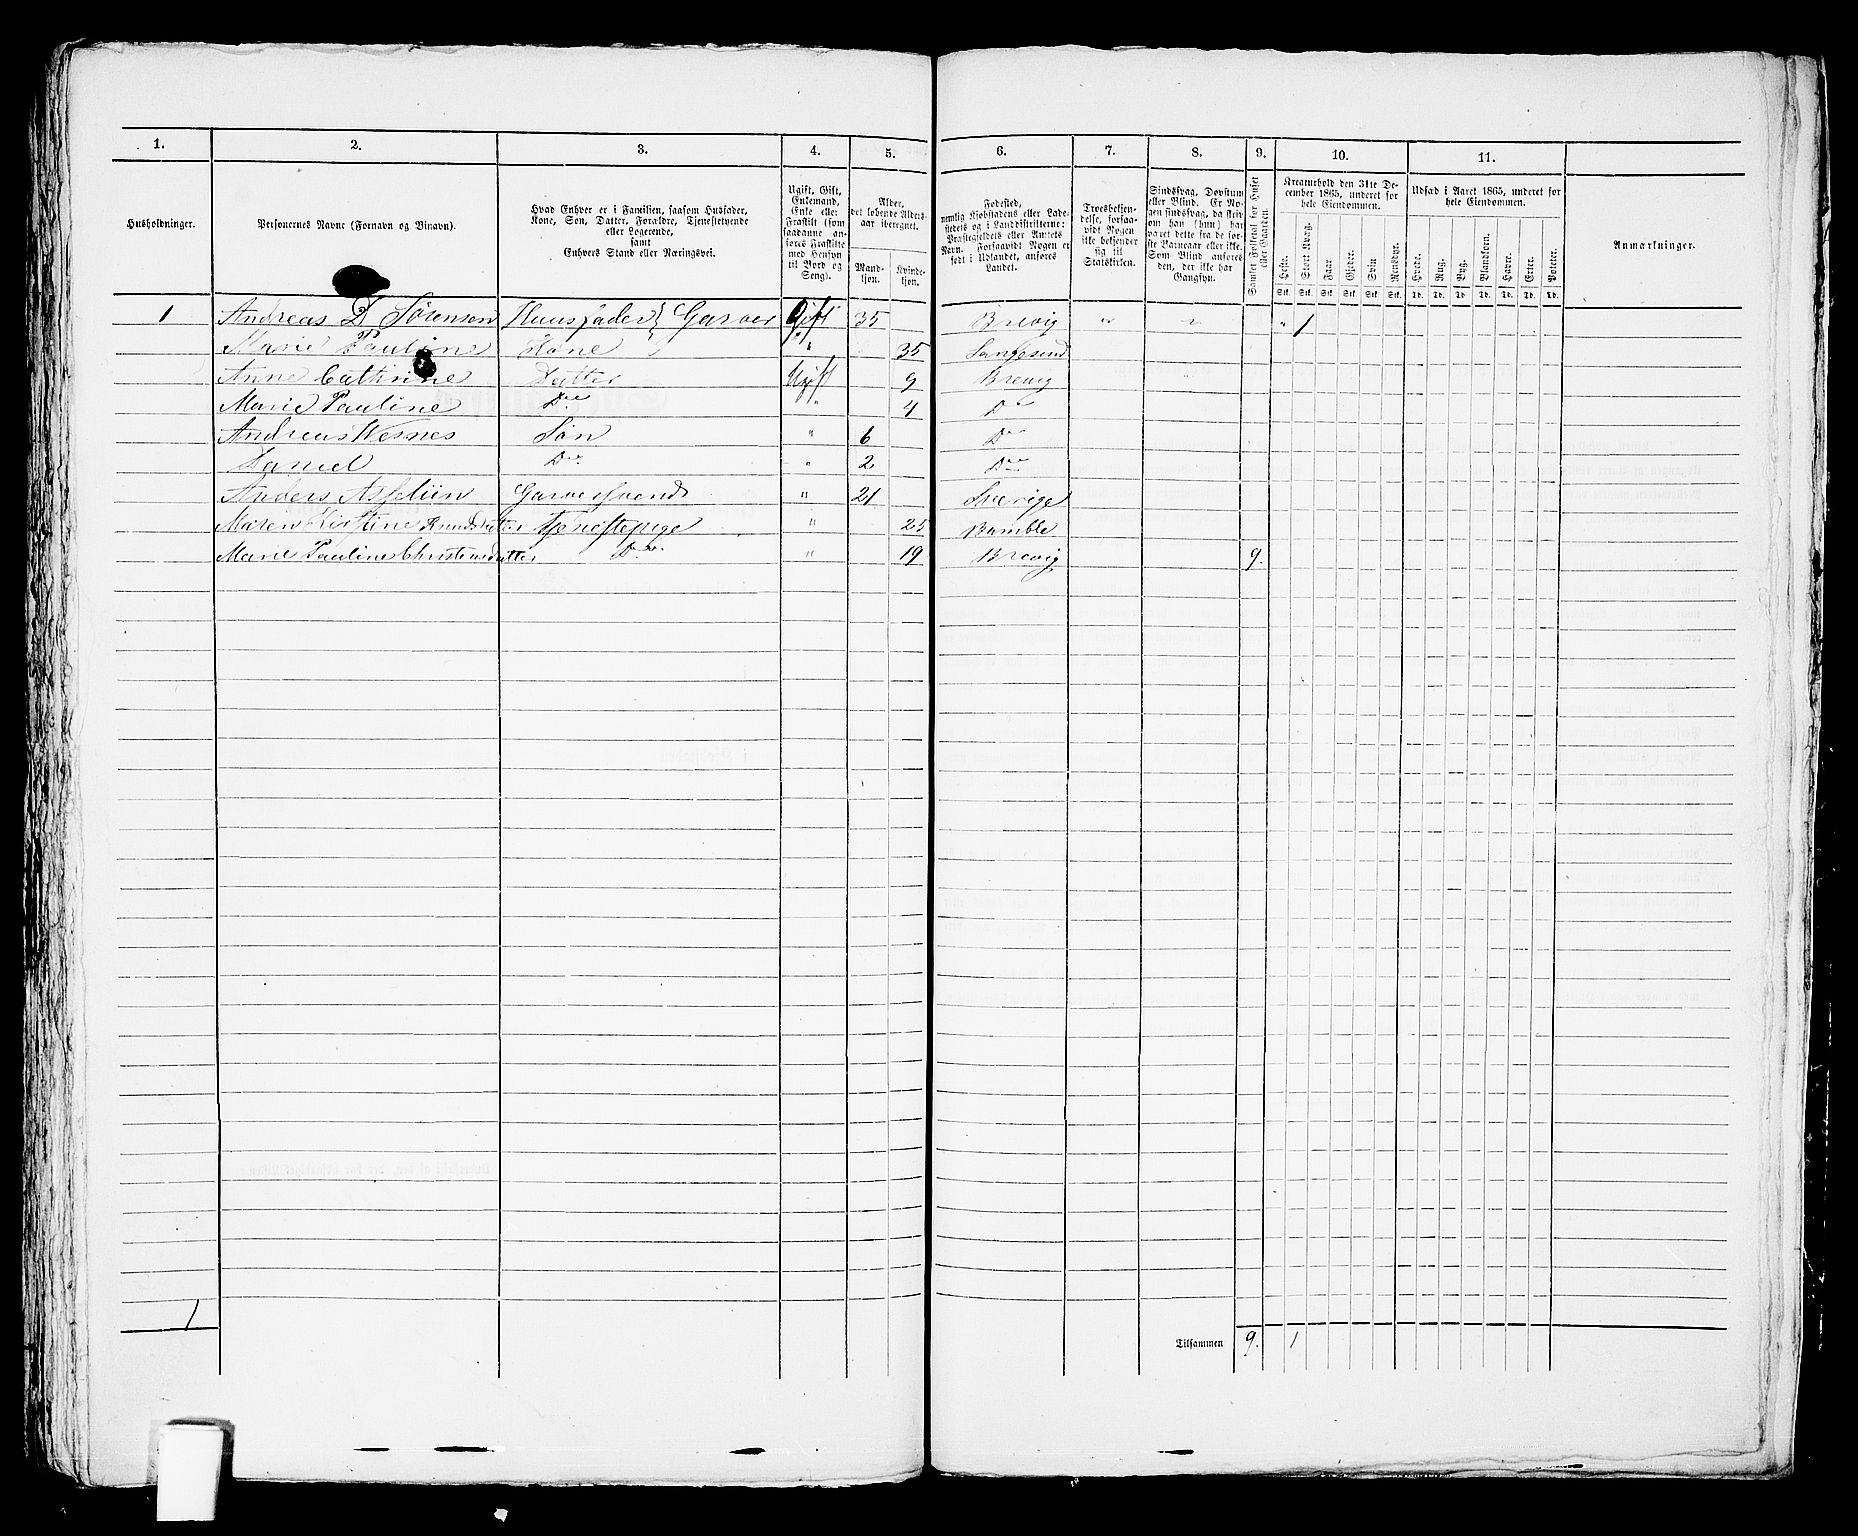 1. 2. 3. 4. 5. 6. 7. 8. 9. 10. 11.
Husholdninger.
Personernes Navne (Fornavn og Binavn).
Hvad Enhver er i Familien, saasom Husfader,
Kone, Søn, Datter, Forældre, Tjenestetyende
eller Logerende,
samt
Enhvers Stand eller Næringsvei.
Ugift, Gift,
Enkemand,
Enke eller
Fraskilt (som
saadanne an-
føres Fraskilte
med Hensyn
til Bord og
Seng).
Alder,
det løbende Alders-
aar iberegnet.
Mand-
kjøn.
Kvinde-
kjøn.
Fødested,
nemlig Kjøbstadens eller Lade-
stedets og i Landdistrikterne:
Præstegjeldets eller Annexets
Navn. Forsaavidt Nogen er
født i Udlandet, anføres
Landet.
Troesbekjen-
delse, forsaa-
vidt Nogen
ikke bekjender
sig til
Statskirken.
Sindssvag, Døvstum
eller Blind. Er No-
gen sindssvag, da skriv
om han (hun) har
været dette fra de før-
ste Barneaar eller ikke.
Som Blind anføres
den, der ikke har
Gangsyn.
Samlet Folketal for Huset
eller Gaarden.
Kreaturhold den 31te De-
cember 1865, underet for
hele Eiendommen.
Heste. Stort Kvæg. Faar Gjeder. Sviin Rensdyr.
Stk. Stk. Stk. Stk. Stk. Stk.
Udsæd i Aaret 1865, underet for
hele Eiendommen.
Hvede. Rug. Byg. Blandkorn. Havre. Erter. Poteter.
Td. Td. Td. Td. Td. Td. Td.
Anmærkninger.
1 Andreas D Sørensen Huusfader Garver Gift 35 Brevig " " " 1
Marie Pauline Kone " 35 Langesund
Anne Cathrine Datter Ugift 9 Brevig
Marie Pauline Do " 4 Do
Andreas Søn " 6 Do
Daniel Do " 2 Do
Anders Garversvend " 21 Sverige
Maren Kirstine Knudsdatter Tjenestepige " 25 Bamble
Marie Pauline Christensdatter Do " 19 Brevig 9.
1
Tilsammen 9. 1